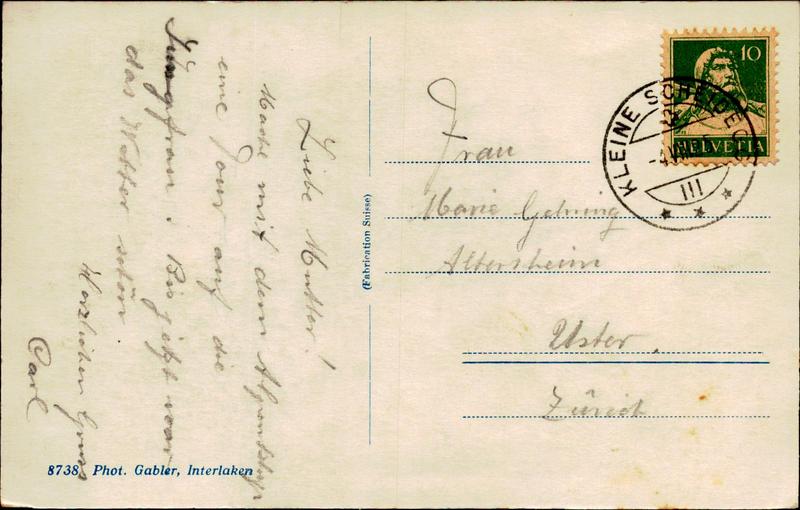 Liebe Mutter!
Mache mit dem Alpenklub
eine Tour auf die
Jungfrau. Bis jetzt war
das Wetter schön
Herzlichen Gruss
Carl
8738 Phot. Gabler, Interlaken
(Fabrication Suisse)
10
HELVETIA
KLEINE SCHEIDEGG
III
Frau
Marie Gehring
Altersheim
Uster.
Zürich